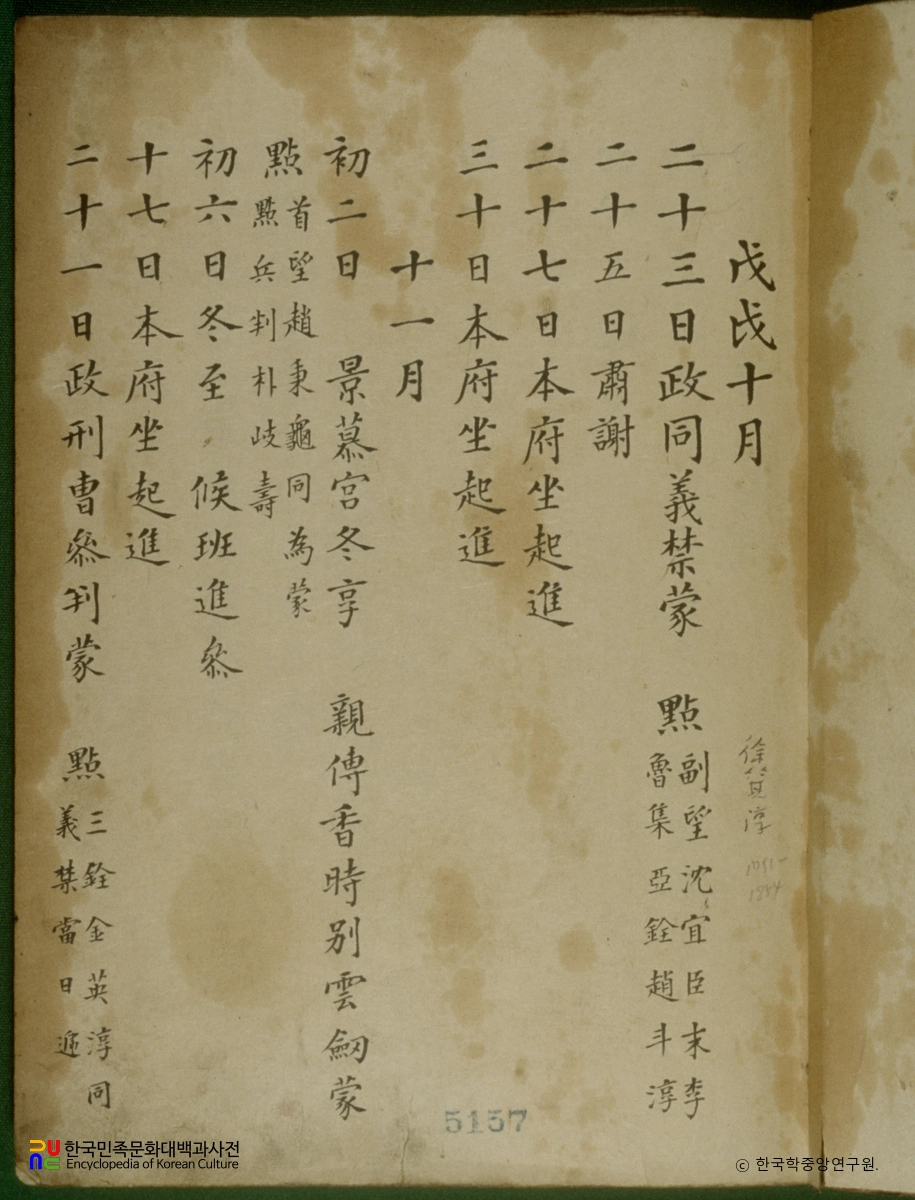 戊戌十月
二十三日政同義禁蒙 點 副望沈宜臣末李
魯集亞銓趙斗淳
二十五日肅謝
二十七日本府坐起進
三十日本府坐起進
十一月
初二日 景慕宮冬享 親傳香時別雲劒蒙
點 首望趙秉龜同為蒙
點兵判朴岐壽
初六日冬至 候班進叅
十七日本府坐起進
二十一日政刑曹叅判蒙 點 三銓金英淳同
義禁當日遞
徐 淳
5157
한국민족문화대백과사전
Encyclopedia of Korean Culture
© 한국학중앙연구원.